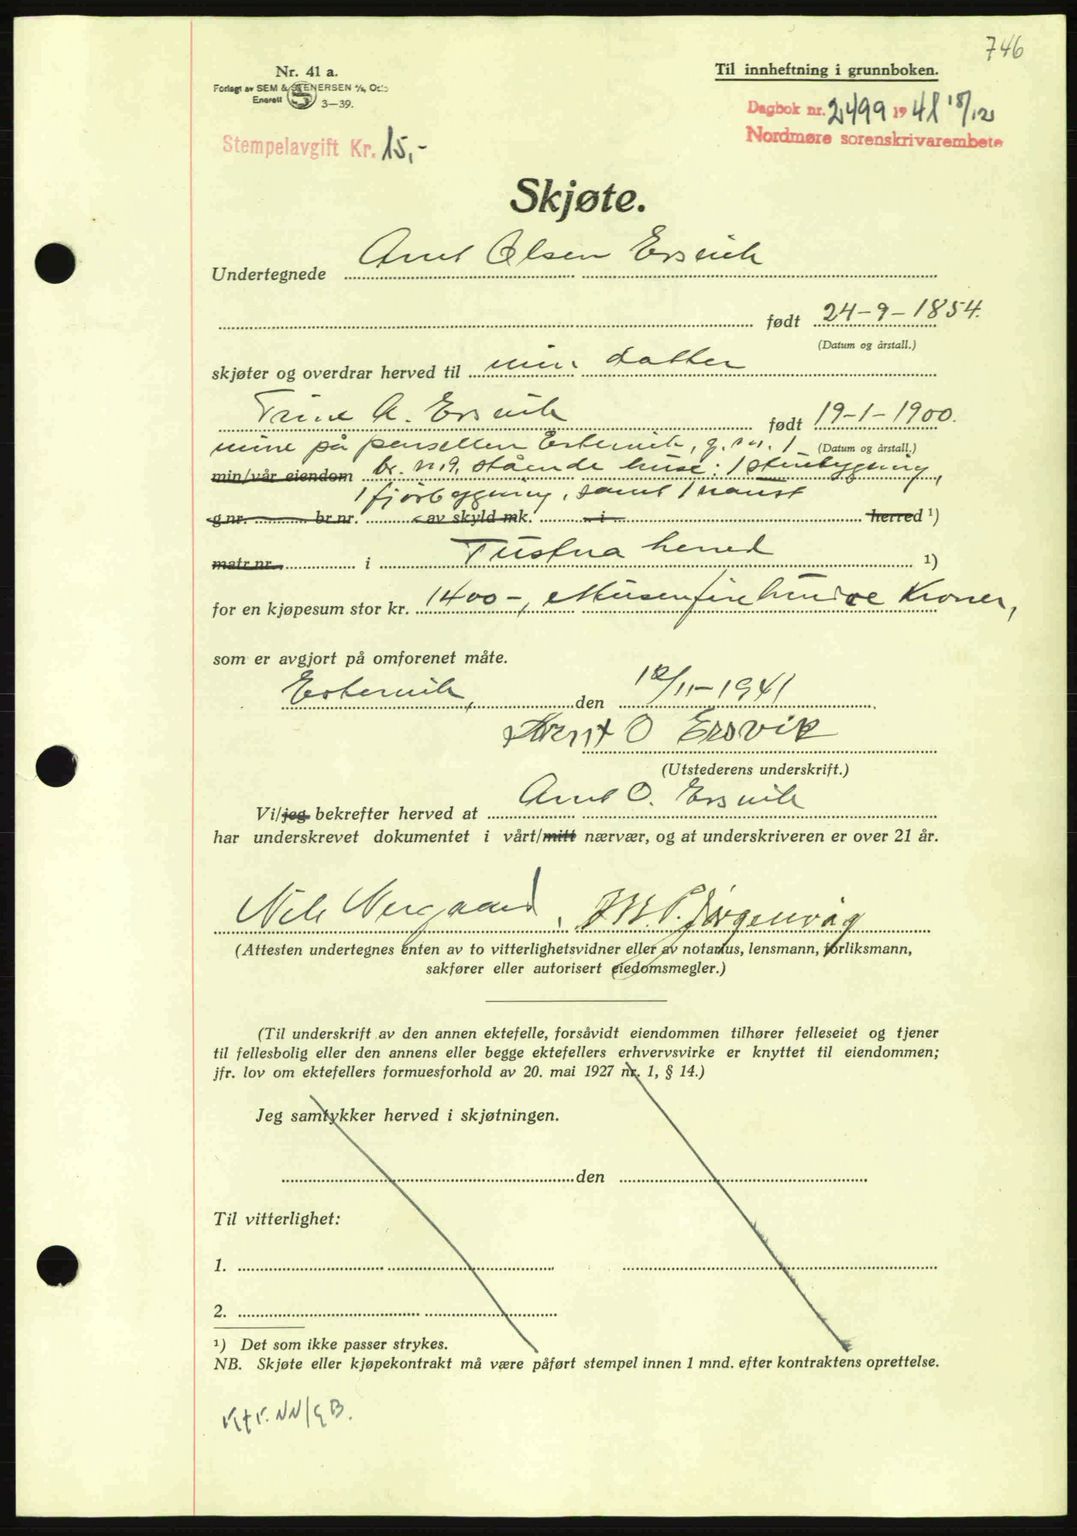 746
Nr. 41 a.
Forlagt av SEM & STENERSEN A/S, Oslo
Enerett 3-39.
Til innheftning i grunnboken.
Dagbok nr. 2499 1941 18/12
Nordmøre sorenskrivarembete
Stempelavgift Kr. 15,-
Skjøte.
Undertegnede Arnt Olsen Ersvik
født 24-9-1854.
(Datum og årstall.)
skjøter og overdrar herved til min datter
Trine A. Ersvik født 19-1-1900.
(Datum og årstall.)
mine på parsellen Estervik, g. nr. 1
min/vår eiendom br. nr. 9, stående huse: 1 stuebygning,
1 fjørbygning, samt 1 naust
g.nr. br.nr. av skyld mk. i herred ¹)
matr.nr. i Tustna herred ¹)
for en kjøpesum stor kr. 1400-, ettusenfirehundre Kroner,
som er avgjort på omforenet måte.
Estervik, den 12/11-1941
Arent O Ersvik
(Utstederens underskrift.)
Vi/jeg bekrefter herved at Arnt O. Ersvik
har underskrevet dokumentet i vårt/mitt nærvær, og at underskriveren er over 21 år.
Nils Nergaard, J. M. P. Jørgenvåg
(Attesten undertegnes enten av to vitterlighetsvidner eller av notarius, lensmann, forliksmann,
sakfører eller autorisert eiedomsmegler.)
(Til underskrift av den annen ektefelle, forsåvidt eiendommen tilhører felleseiet og tjener
til fellesbolig eller den annens eller begge ektefellers erhvervsvirke er knyttet til eiendommen;
jfr. lov om ektefellers formuesforhold av 20. mai 1927 nr. 1, § 14.)
Jeg samtykker herved i skjøtningen.
den
Til vitterlighet:
1.
2.
¹) Det som ikke passer strykes.
NB. Skjøte eller kjøpekontrakt må være påført stempel innen 1 mnd. efter kontraktens oprettelse.